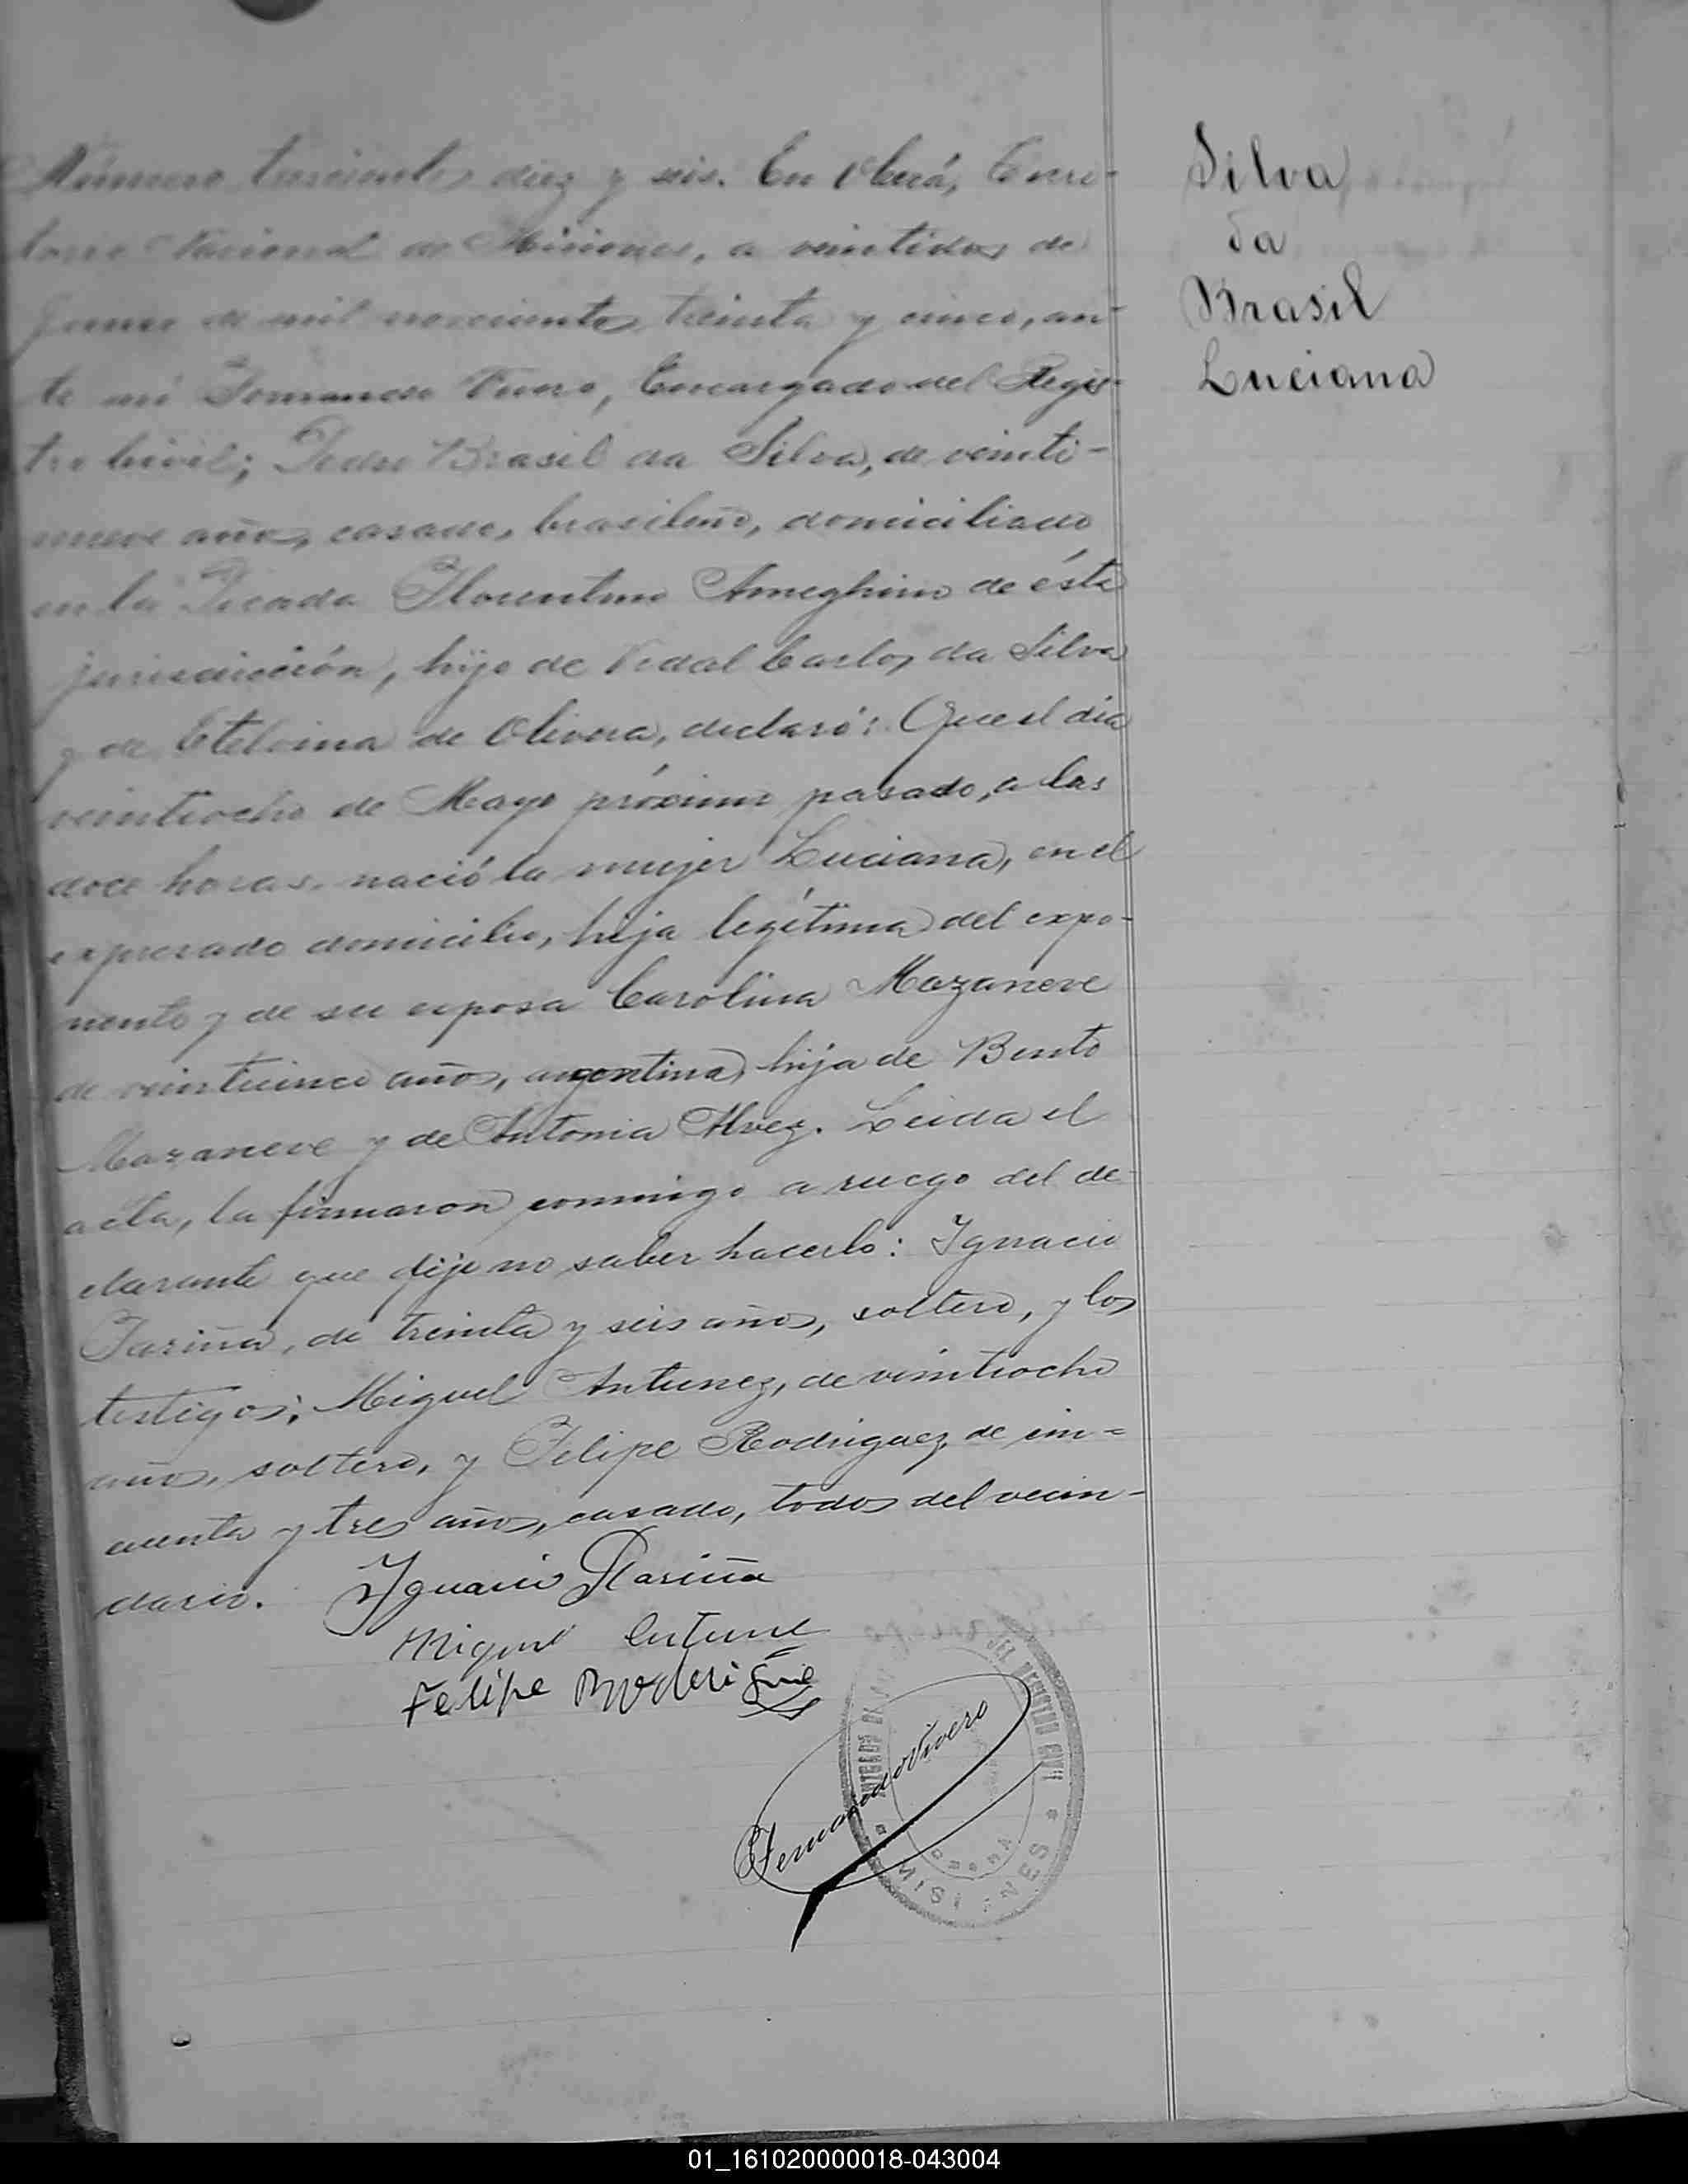 Número trescientos diez y seis. En Oberá, Terri-
torio Nacional de Misiones, a veintidos de
Junio de mil novecientos treinta y cinco, an-
te mi Fernando Vivero, Encargado del Regis-
tro Civil; Pedro Brasil da Silva, de veinti-
nueve años, casado, brasileño, domiciliado
en la Picada Florentino Ameghino de ésta
jurisdicción, hijo de Vidal Carlos da Silva
y de Etelvina de Olivera, declaró: Que el día
veintiocho de Mayo próximo pasado, a las
doce horas, nació la mujer Luciana, en el
expresado domicilio, hija legítima del expo-
nente y de su esposa Carolina Mazaneve
de veinticinco años, argentina, hija de Bento
Mazaneve y de Antonia Alvez. Leida el
acta, la firmaron conmigo a ruego del de-
clarante que dijo no saber hacerlo: Ignacio
Fariña, de treinta y seis años, soltero, y los
testigos: Miguel Antunez, de veintiocho
años, soltero, y Felipe Rodriguez, de cin=
cuenta y tres años, casado, todos del vecin-
dario.
Ignacio Fariña
Miguel Antune
Felipe Roderigue
Fernando Vivero
DEL REGISTRO CIVIL
MISIONES
Silva
da
Brasil
Luciana
01_161020000018-043004